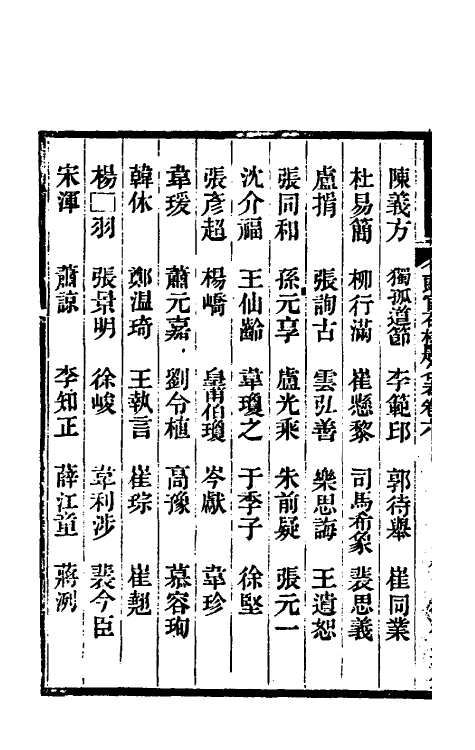 陳義方 獨孤道節 李範邱 郭待舉 崔同業
杜易簡 柳行滿 崔懸黎 司馬希象 裴思義
盧揹 張詢古 雲弘善 樂思誨 王遺恕
張同和 孫元享 盧光乘 朱前疑 張元一
沈介福 王仙齡 韋瓊之 于季子 徐堅
張彥超 楊嶠 皇甫伯瓊 岑獻 韋珍
韋瑗 蕭元嘉 劉令植 高豫 慕容珣
韓休 鄭温琦 王執言 崔琮 崔翹
楊□羽 張景明 徐峻 韋利涉 裴令臣
宋渾 蕭諒 李知正 薛江童 蔣洌